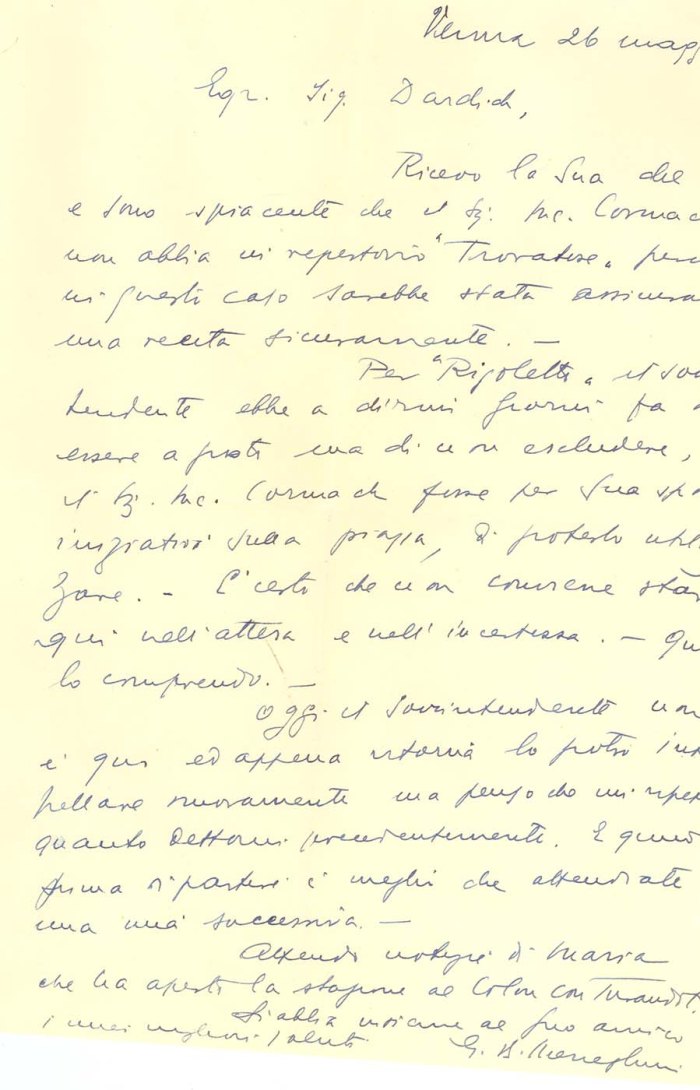 Verona 26 magg
Egr. Sig. Dardich,
Ricevo la Sua che
e sono spiacente che il Sig. Mc. Cormac
non abbia in repertorio "Trovatore" perc
in questo caso sarebbe stata assicura
una recita sicuramente. —
Per "Rigoletto" il sov
tendente ebbe a dirmi giorni fa
essere a posto ma di non escludere,
il Sig. Mc. Cormack fosse per Sua spo
iniziativa sulla piazza, di poterlo utili
zare. - E' certo che non conviene star
qui nell'attesa e nell'incertezza. - Qu
lo comprendo. —
Oggi il Sovrintendente non
è qui ed appena ritorna lo potrò int
pellare nuovamente ma penso che mi ripet
quanto dettomi precedentemente. E quind
prima di partire è meglio che attendiate
una mia successiva. —
Attendo notizie di Maria
che ha aperto la stagione al Colon con Turandot.
Si abbia insieme al Suo amico
i miei migliori saluti
G. B. Meneghini